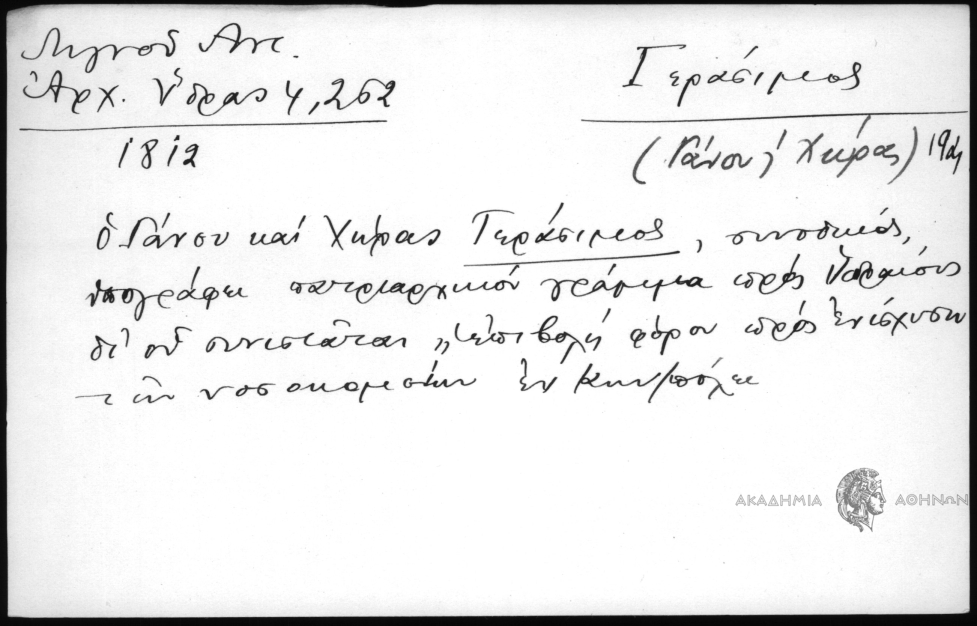 Λιγνοῦ Ἀντ.
Ἀρχ. Ὕδρας 4, 252
1812
Γεράσιμος
(Γάνου ἡ Χώρας) 19ος
ὁ Γάνου καί Χώρας Γεράσιμος, συνοδικός,
ὑπογράφει πατριαρχικόν γράμμα πρός Ὑδραίους
δι' οὗ συνιστᾶται ἐπιβολή φόρου πρός ἐνίσχυσιν
τῶν νοσοκομείων ἐν Κων/πόλει
ΑΚΑΔΗΜΙΑ ΑΘΗΝΩΝ